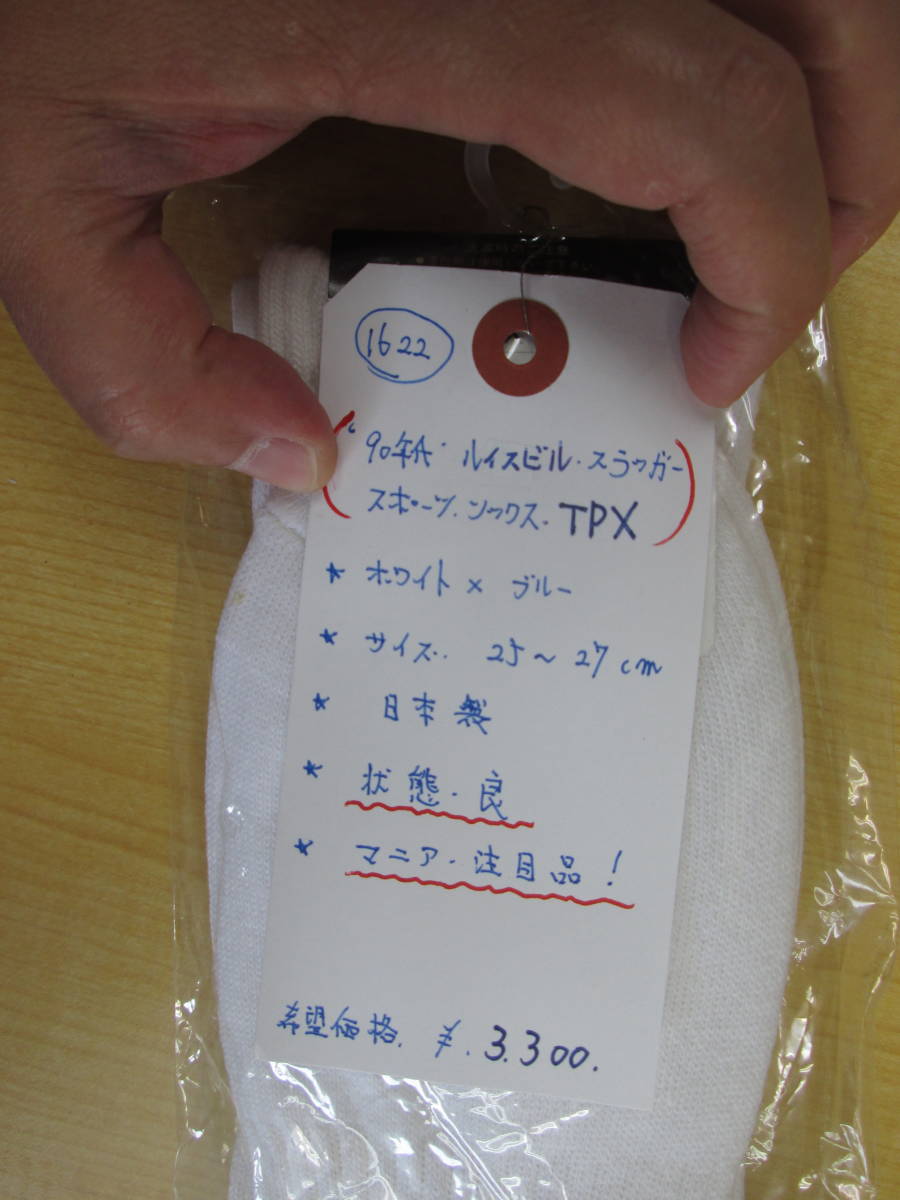 1622
90年代・ルイスビル・スラッガー
スポーツ.ソックス.TPX
* ホワイト × ブルー
* サイズ. 25〜27cm
* 日本製
* 状態・良
* マニア・注目品!
希望価格. ¥.3.300.